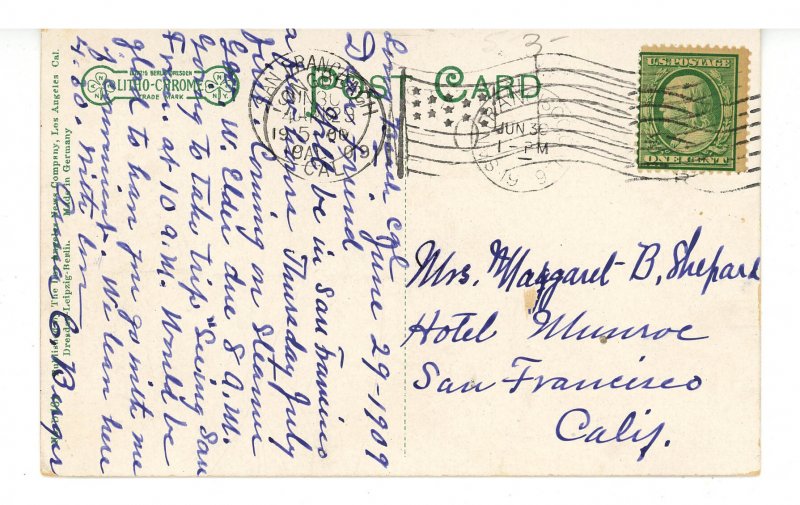 POST CARD
BERLIN DRESDEN
LITHO-CHROME
TRADE MARK
U.S. POSTAGE
ONE CENT
SAN FRANCISCO
JUN 30
1-PM
CAL.
Long Beach Cal
June 29-1909
Dear Friend
Will be in San Francisco
Thursday July
1st. Coming on Steamer
Geo. W. Elder due 8 A.M.
Going to take trip "Seeing San
Fran. at 10 A.M. Would be
glad to have you go with me
if convenient. We leave here
4.30. With love
Mrs. Margaret B. Shepard
Hotel Munroe
San Francisco
Calif.
Published by The Los Angeles News Company, Los Angeles Cal.
Dresden-Leipzig-Berlin. Made in Germany